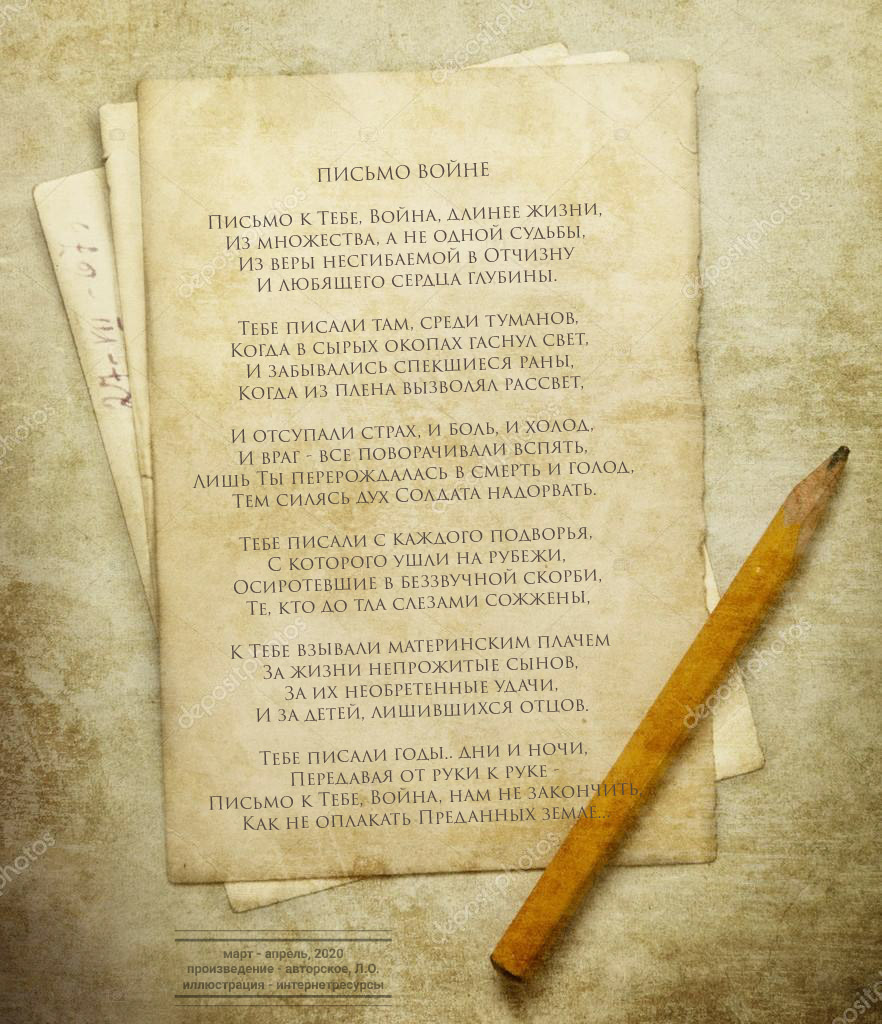 ПИСЬМО ВОЙНЕ
Письмо к Тебе, Война, длинее жизни,
Из множества, а не одной судьбы,
Из веры несгибаемой в Отчизну
И любящего сердца глубины.
Тебе писали там, среди туманов,
Когда в сырых окопах гаснул свет,
И забывались спекшиеся раны,
Когда из плена вызволял рассвет,
И отступали страх, и боль, и холод,
И враг - все поворачивали вспять,
Лишь Ты перерождалась в смерть и голод,
Тем силясь дух Солдата надорвать.
Тебе писали с каждого подворья,
С которого ушли на рубежи,
Осиротевшие в беззвучной скорби,
Те, кто до тла слезами сожжены,
К Тебе взывали материнским плачем
За жизни непрожитые сынов,
За их необретенные удачи,
И за детей, лишившихся отцов.
Тебе писали годы.. дни и ночи,
Передавая от руки к руке -
Письмо к Тебе, Война, нам не закончить,
Как не оплакать Преданных земле...
март - апрель, 2020
произведение - авторское, Л.О.
иллюстрация - интернетресурсы
depositphotos